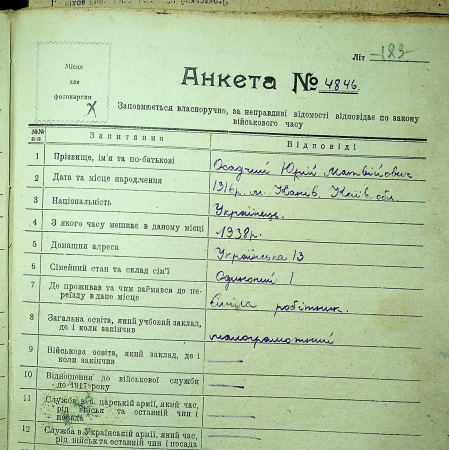 Літ 183
Місце
для
фотокартки
Анкета № 4846.
Заповнюється власноручно, за неправдиві відомості відповідає по закону
військового часу
№№
п-п
Запитання
Відповіді
1 Прізвище, ім'я та по-батькові Осадчий Юрій Матвійович
2 Дата та місце народження 1916р. м. Іванків, Київ. обл.
3 Національність Українець.
4 З якого часу мешкає в даному місці 1938р.
5 Домашня адреса Українська 13
6 Сімейний стан та склад сім'ї Одинокий 1
7 Де проживав та чим займався до пе-
реїзду в дане місце робітник.
8 Загальна освіта, який учбовий заклад,
де і коли закінчив малограмотний
9 Військова освіта, який заклад, де і
коли закінчив
10 Відношення до військової служби
до 1917 року
11 Служба в б. царській армії, який час,
рід військ та останній чин і
посада
12 Служба в Українській армії, який час,
рід військ та останній чин і посада